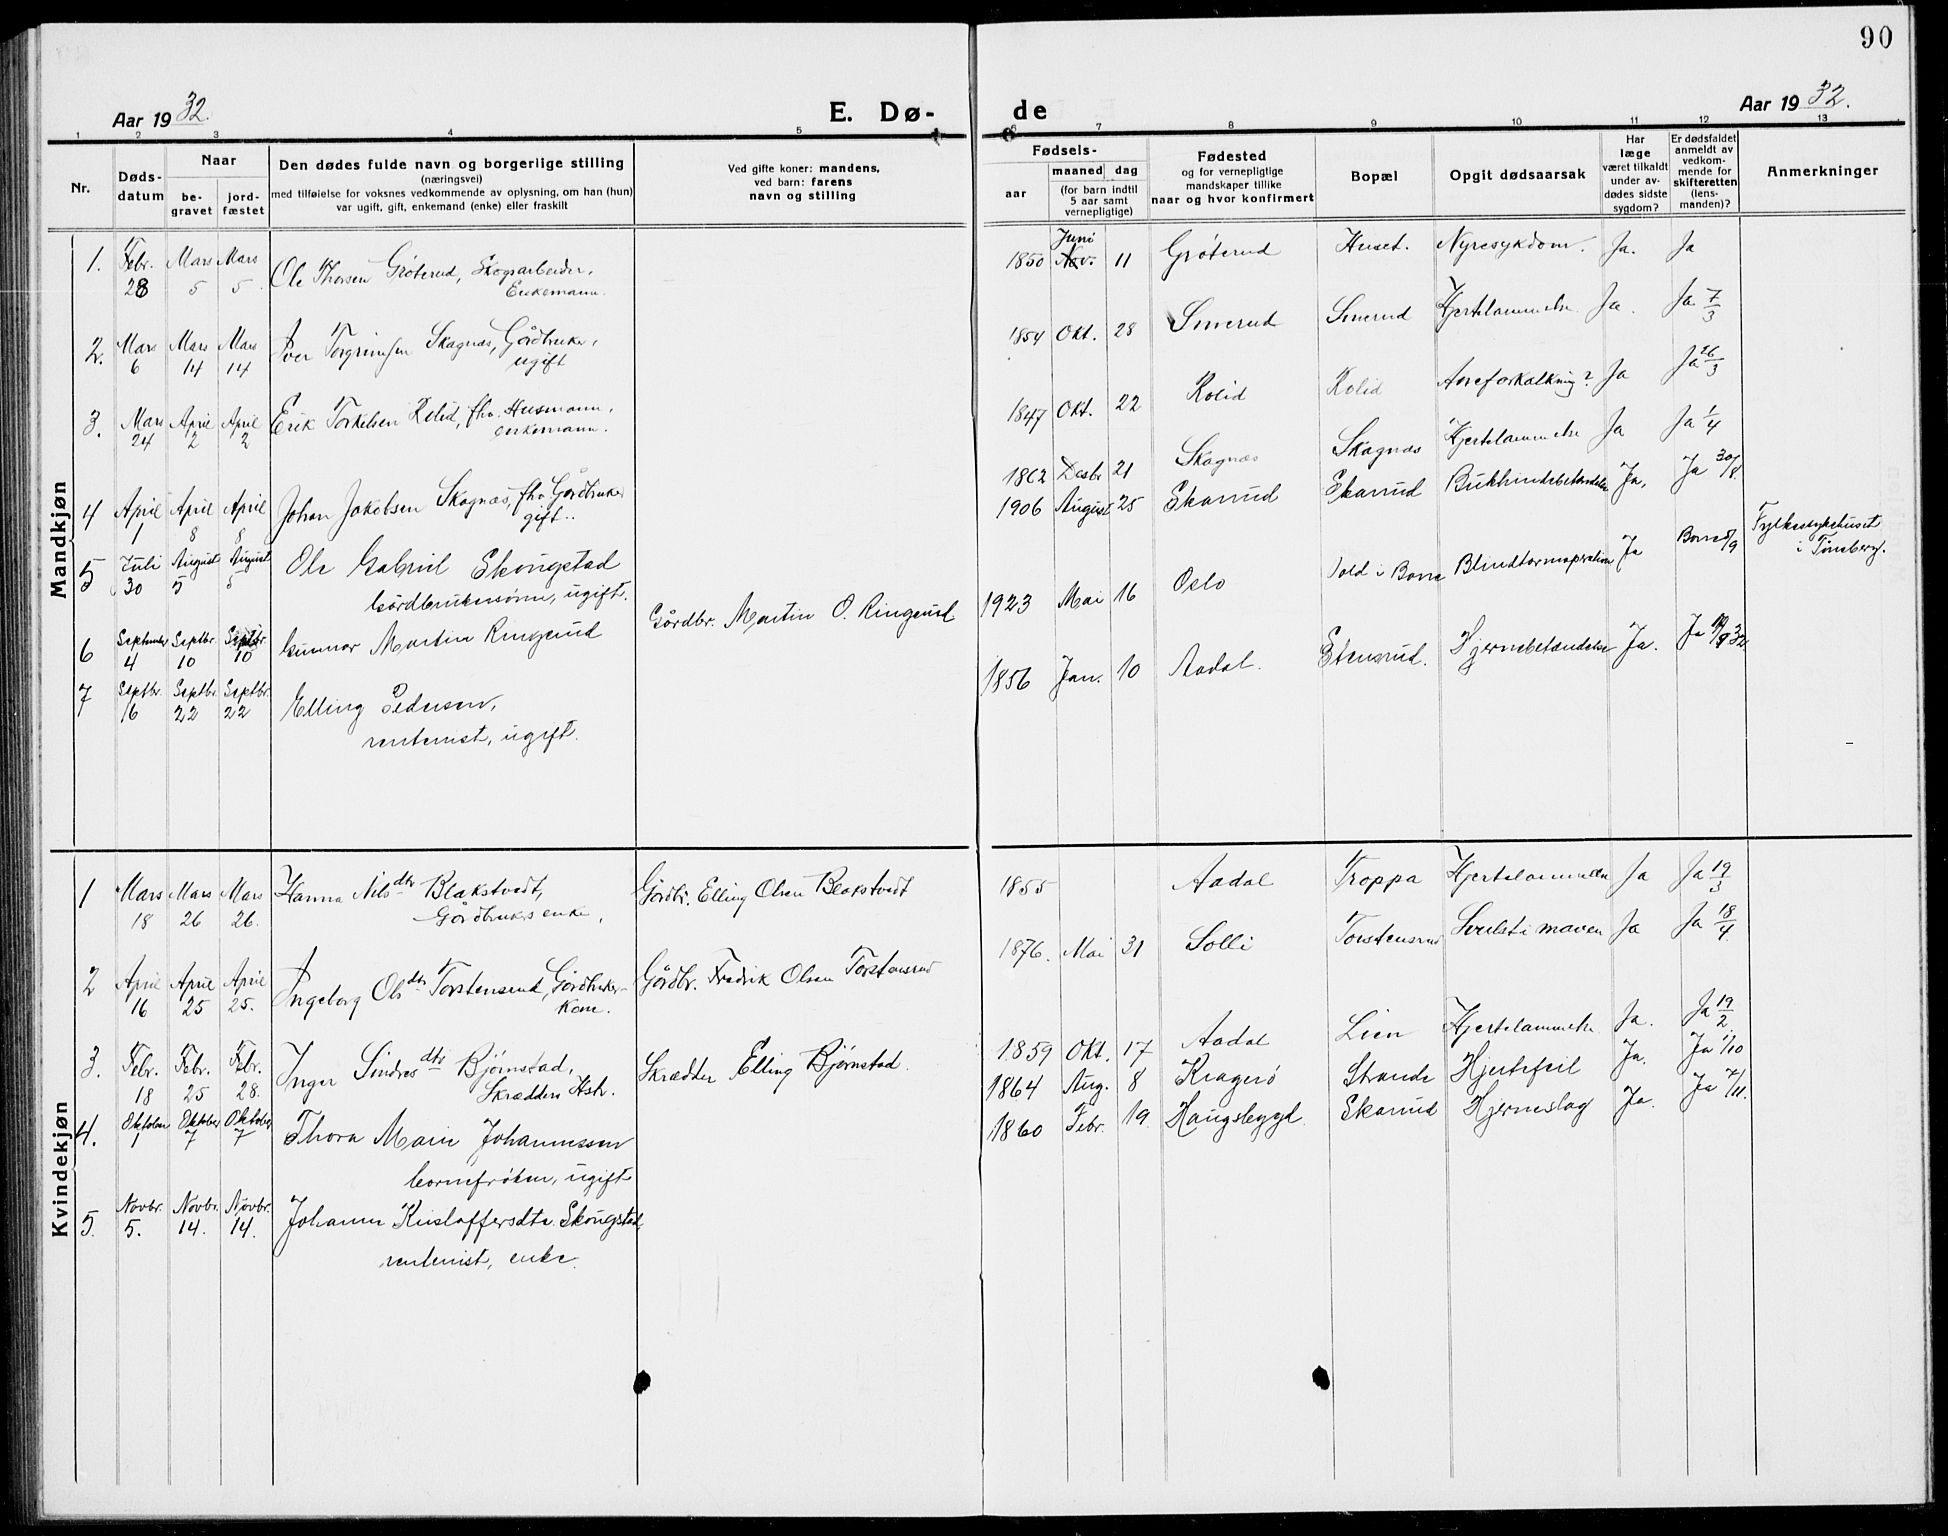 90
Aar 1932.
E. Dø-
de
Aar 1932.
1 2 3 4 5 6 7 8 9 10 11 12 13
Nr.
Døds-
datum
Naar
be-
gravet
jord-
fæstet
Den dødes fulde navn og borgerlige stilling
(næringsvei)
med tilføielse for voksnes vedkommende av oplysning, om han (hun)
var ugift, gift, enkemand (enke) eller fraskilt
Ved gifte koner: mandens,
ved barn: farens
navn og stilling
Fødsels-
aar
maaned dag
(for barn indtil
5 aar samt
vernepligtige)
Fødested
og for vernepligtige
mandskaper tillike
naar og hvor konfirmert
Bopæl
Opgit dødsaarsak
Har
læge
været tilkaldt
under av-
dødes sidste
sygdom?
Er dødsfaldet
anmeldt av
vedkom-
mende for
skifteretten
(lens-
manden)?
Anmerkninger
Mandkjøn
1. Febr. 28 Mars 5 Mars 5 Ole Thorsen Grøterud, Skogsarbeider,
Enkemann.
1850 Juni Nov. 11 Grøterud Huset. Nyresykdom. Ja. Ja
2. Mars 6 Mars 14 Mars 14 Iver Torgrimsen Skagnæs, Gårdbruker,
ugift
1854 Okt. 28 Smerud Smerud Hjertelammelse Ja. Ja 7/3
3. Mars 24 April 2 April 2 Erik Torkelsen Kolid, fhv. Husmann,
enkemann.
1847 Okt. 22 Kolid Kolid Aareforkalkning? Ja Ja 26/3
4 April 1 April 8 April 8 Johan Jakobsen Skagnæs, fhv Gårdbruker
gift..
1862 Desbr 21 Skagnæs Skagnæs Hjertelammelse Ja Ja 1/4
5 Juli 30 August 5 August 5 Ole Gabriel Skougstad
Gårdbrukersønn, ugift.
1906 August 25 Skarrud Skarrud Bukhindebetendelse Ja, Ja 30/8.
6 September 4 Septbr. 10 Septbr. 10 Gunnar Martin Ringerud
Gårdbr. Martin O. Ringerud
1923 Mai 16 Oslo i Borre Blindtarmoperation Ja Borre 5/9 Fylkessykehuset
i Tønsberg.
7 Septbr. 16 Septbr. 22 Septbr. 22 Elling Pedersen,
rentenist, ugift.
1856 Jan. 10 Aadal. Stensrud. Hjernebetændelse Ja. Ja 32
Kvindekjøn
1 Mars 18 Mars 26 Mars 26. Hanna Nilsdtr Blakstvedt,
Gårdbrukers enke,
Gårdbr. Elling Olsen Blakstvedt
1855 Aadal Troppa Hjertelammelse Ja Ja 19/3
2 April 16 April 25 April 25. Ingeborg Olsdtr Torstensrud, Gårdbruker-
kone.
Gårdbr. Fredrik Olsen Torstensrud
1876. Mai 31 Solli Torstensrud Svulst i maven Ja Ja 18/4
3. Febr. 18 Febr. 25 Febr. 28. Inger Sindresdtr Bjørnstad,
Skrædders Hstr.
Skrædder Elling Bjørnstad.
1859 Okt. 17 Aadal Lien Hjertelammelse Ja. Ja 19/2
4. Oktober 1 Oktober 7 Oktober 7 Thora Marie Johannessen
barnefrøken, ugift
1864 Aug. 8 Kragerø Strande Hjertefeil Ja. Ja 1/10
5. Novbr. 5. Novbr. 14. Novbr. 14. Johanne Kristoffersdtr. Skougstad,
rentenist, enke.
1860 Febr. 19. Haugsbygd. Skarrud Hjerneslag Ja. Ja 7/11.